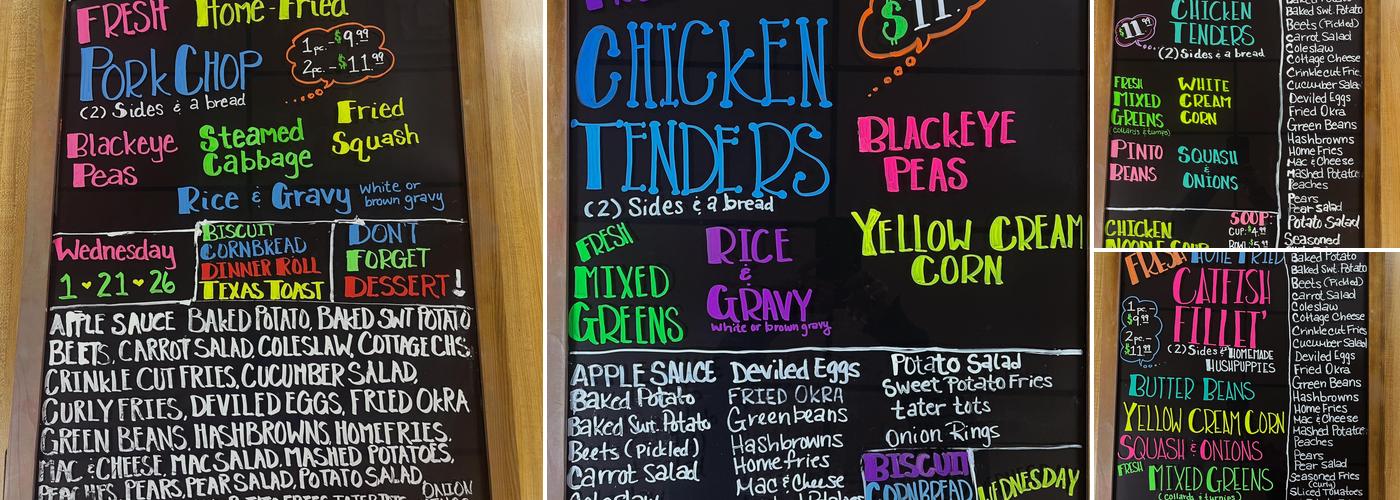 FRESH Home-Fried
PORK CHOP
1pc.-$9.99
2pc.-$11.99
(2) Sides & a bread
Blackeye Peas
Steamed Cabbage
Fried Squash
Rice & Gravy white or brown gravy
Wednesday
1•21•26
BISCUIT
CORNBREAD
DINNER ROLL
TEXAS TOAST
DON'T
FORGET
DESSERT!
APPLE SAUCE BAKED POTATO, BAKED SWT POTATO
BEETS, CARROT SALAD, COLESLAW, COTTAGE CHS.
CRINKLE CUT FRIES, CUCUMBER SALAD,
CURLY FRIES, DEVILED EGGS, FRIED OKRA
GREEN BEANS, HASHBROWNS, HOMEFRIES,
MAC & CHEESE, MAC SALAD, MASHED POTATOES,
PEACHES, PEARS, PEAR SALAD, POTATO SALAD,
ONION
$11.
CHICKEN
TENDERS
(2) Sides & a bread
BLACKEYE
PEAS
FRESH
MIXED
GREENS
RICE
&
GRAVY
white or brown gravy
YELLOW CREAM
CORN
APPLE SAUCE
Baked Potato
Baked Swt. Potato
Beets (Pickled)
Carrot Salad
Coleslaw
Deviled Eggs
FRIED OKRA
Greenbeans
Hashbrowns
Homefries
Mac & Cheese
Potato Salad
Sweet Potato Fries
tater tots
Onion Rings
BISCUIT
CORNBREAD
WEDNESDAY
$11.99
CHICKEN
TENDERS
(2) Sides & a bread
FRESH
MIXED
GREENS
(collards & turnips)
WHITE
CREAM
CORN
PINTO
BEANS
SQUASH
&
ONIONS
CHICKEN
NOODLE SOUP
SOUP:
CUP: $4.99
BOWL: $5.99
Baked Swt. Potato
Beets (Pickled)
Carrot Salad
Coleslaw
Cottage Cheese
Crinkle cut Fries
Cucumber Sala
Deviled Eggs
Fried Okra
Green Beans
Hashbrowns
Home Fries
Mac & Cheese
Mashed Potatoe
Peaches
Pears
Pear Salad
Potato Salad
Seasoned
FRESH HOME FRIED
CATFISH
FILLET'
1pc-
$9.99
2pc.-
$11.99
(2) Sides & HOMEMADE
HUSHPUPPIES
BUTTER BEANS
YELLOW CREAM CORN
SQUASH & ONIONS
FRESH MIXED GREENS
(collards & turnips)
Baked Potato
Baked Swt. Potato
Beets (Pickled)
Carrot Salad
Coleslaw
Cottage Cheese
Crinkle cut Fries
Cucumber Salad
Deviled Eggs
Fried Okra
Green Beans
Hashbrowns
Home Fries
Mac & Cheese
Mashed Potatoe
Peaches
Pears
Pear Salad
Seasoned Fries
(curly)
Sliced Tomatoes